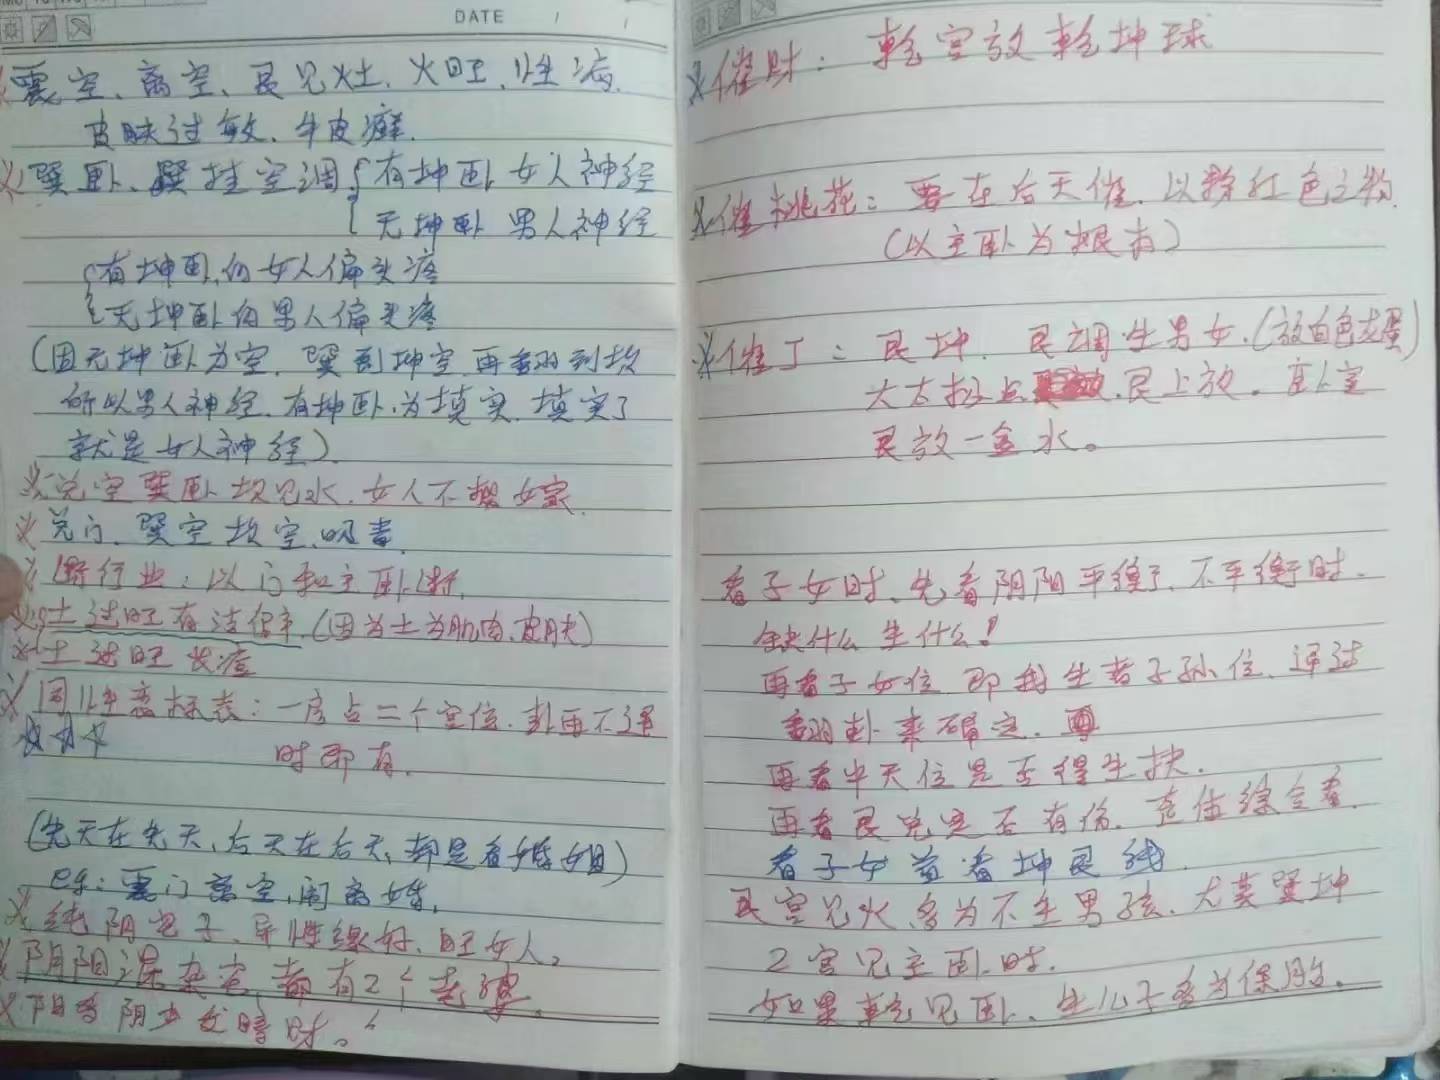 DATE / /
※震空、离空、艮见灶、火旺、性病、
皮肤过敏、牛皮癣.
※巽卧、巽挂空调 有坤卧 女人神经
无坤卧 男人神经
有坤卧,伤女人偏头疼
无坤卧伤男人偏头疼
(因无坤卧为空、巽到坤空、再翻到坎
所以男人神经、有坤卧、为填实、填实了
就是女人神经)
※兑空巽卧坎见水、女人不想嫁
※兑门、巽空坎空、吸毒.
※断行业:以门和主卧断.
※土过旺有洁(因为土为肌肉、皮肤)
※土过旺长痘
※同性恋标表:一房占二个宫位、卦再不通
☆☆☆ 时即有.
(先天在先天,后天在后天,都是看婚姻)
eg:震门离空,闹离婚,
※纯阴宅子、异性缘好、旺女人。
※阴阳混杂宅、都有2个老婆.
※阳多阴少时。
※催财:乾宫放乾坤球
※催桃花:要在后天催、以粉红色之物
(以主卧为根有)
※催丁:艮坤、艮调生男女.(放白色龙蛋)
艮上放、卧室
艮放一盒水。
看子女时、先看阴阳平衡了、不平衡时、
缺什么生什么!
再看子女位 即我生者子孙位、通过
翻卦来确定.
再看中天位是否得生扶.
再看艮兑是否有伤、整体综合看.
看子女首看坤艮线.
艮宫见火,多为不生男孩、尤其巽坤
2宫见主卧时.
如果乾见卧、生儿子多为保胎、